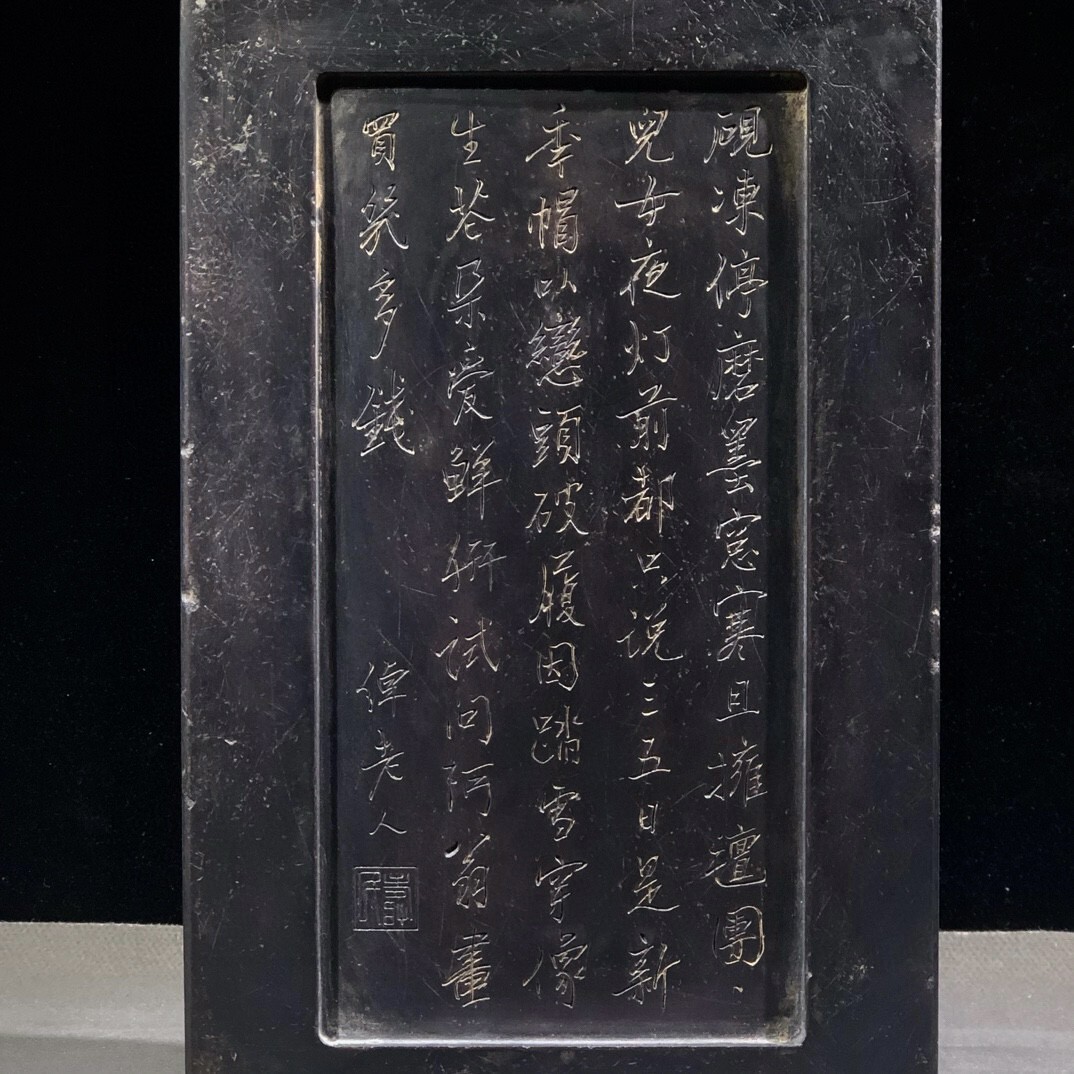 硯凍停磨墨窓寒且擁氊團丶
兒女夜灯前都只说三五日是新
秊帽以戀頭破履因踏雪穿像
生花朵愛鮮妍試問阿翁畫
買幾多錢
偉老人